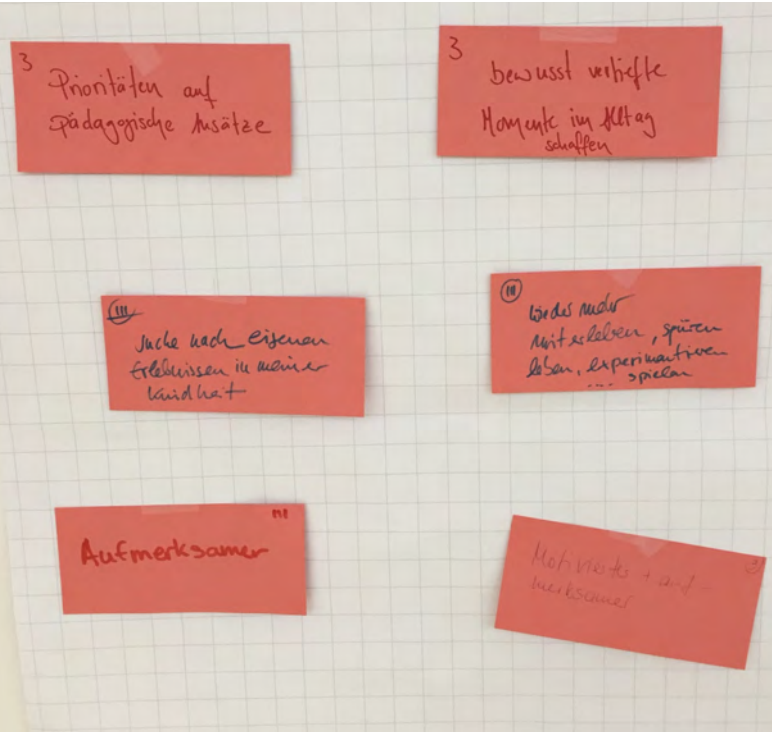 3
Prioritäten auf
Pädagogische Ansätze
3
bewusst vertiefte
Momente im Alltag
schaffen
III
suche nach eigenen
Erlebnissen in meiner
Kindheit
III
wieder mehr
miterleben, spüren
leben, experimentieren
... spielen
III
Aufmerksamer
3)
Motivierter + auf-
merksamer